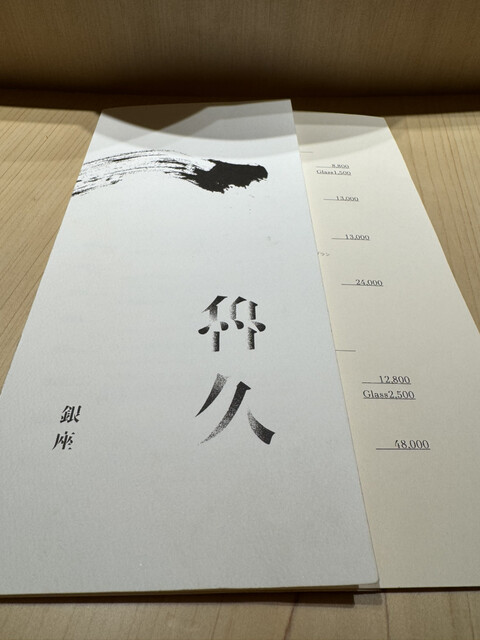 久
銀座
8,800
Glass1,500
13,000
13,000
24,000
12,800
Glass2,500
48,000